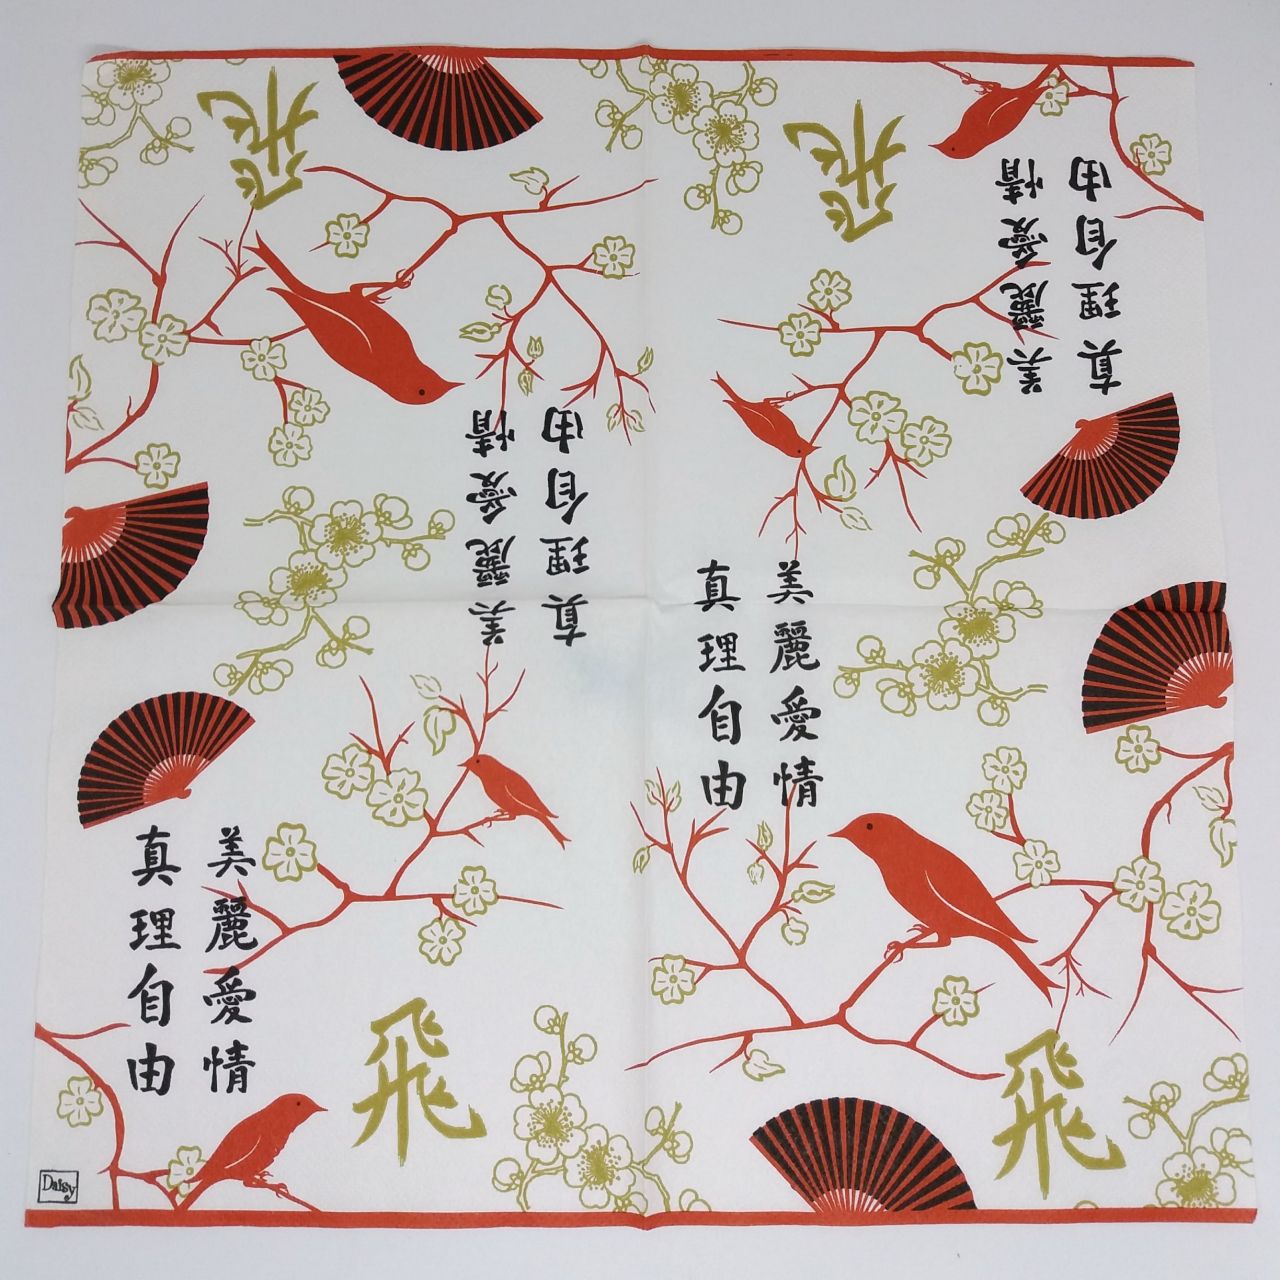 飛
飛
美麗愛情
真理自由
美麗愛情
真理自由
美麗愛情
真理自由
美麗愛情
真理自由
飛
飛
Daisy